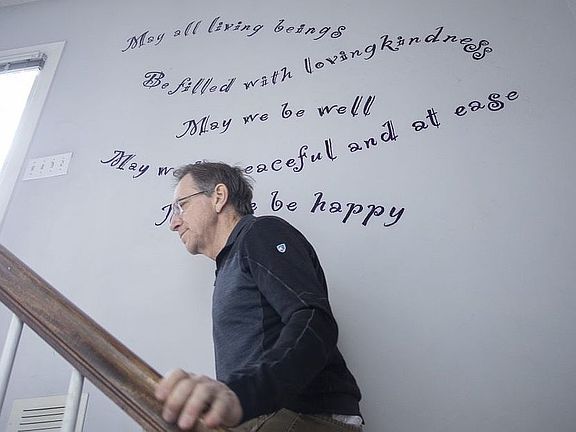 May all living beings
Be filled with lovingkindness
May we be well
May eaceful and at ease
be happy